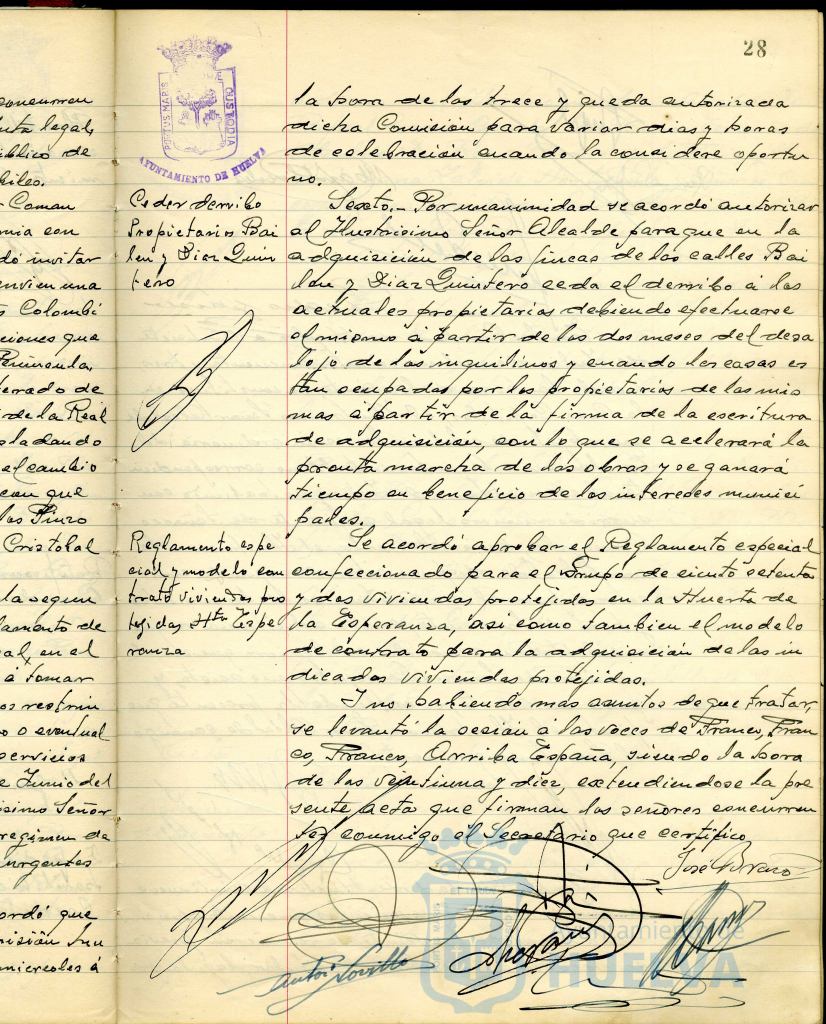 28
PORTUS MARIS
CUSTODIA
AYUNTAMIENTO DE HUELVA
la hora de las trece y queda autorizada
dicha Comisión para variar dias y horas
de celebración cuando la considere oportu
no.
Ceder derribo
Propietarios Bai
len y Diaz Quin
tero
Sexto.- Por unanimidad se acordó autorizar
al Ilustrisimo Señor Alcalde para que en la
adquisición de las fincas de las calles Bai
len y Diaz Quintero ceda el derribo á los
actuales propietarios debiendo efectuarse
el mismo á partir de los dos meses del desa
lojo de los inquilinos y cuando las casas es
tan ocupadas por los propietarios de las mis
mas á partir de la firma de la escritura
de adquisición, con lo que se acelerará la
pronta marcha de las obras y se ganará
tiempo en beneficio de los intereses munici
pales.
Reglamento espe
cial y modelo con
trato viviendas pro
tejidas Hta Espe
ranza
Se acordó aprobar el Reglamento especial
confeccionado para el Grupo de ciento setenta
y dos viviendas protejidas en la Huerta de
la Esperanza, asi como tambien el modelo
de contrato para la adquisición de las in
dicadas viviendas protejidas.
Y no habiendo mas asuntos de que tratar,
se levantó la sesión á las voces de Franco, Fran
co, Franco, Arriba España, siendo la hora
de las veintiuna y diez, extendiendose la pre
sente acta que firman los señores concurren
tes conmigo el Secretario que certifico
José
Ayuntamiento de
HUELVA
concurren
legal,
público de
Coman
con
dó invitar
envien una
Colombi
ciones que
Peninsula,
de
de la Real
sladando
el cambio
con que
los Pinzo
Cristobal
la segun
lamento de
al en el
á tomar
os restrin
o o eventual
servicios
e Junio del
isimo Señor
regimen de
urgentes
ordó que
misión
miercoles á